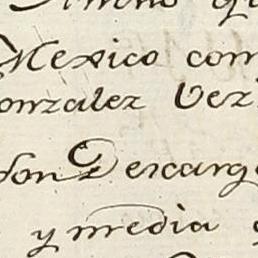 Mexico com
onzalez Vez
son Descarg
y media